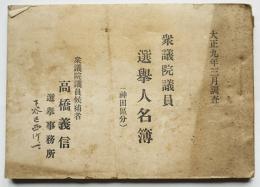 大正九年三月調査
衆議院議員
選擧人名簿
（神田區分）
衆議院議員候補者
高橋義信
選擧事務所